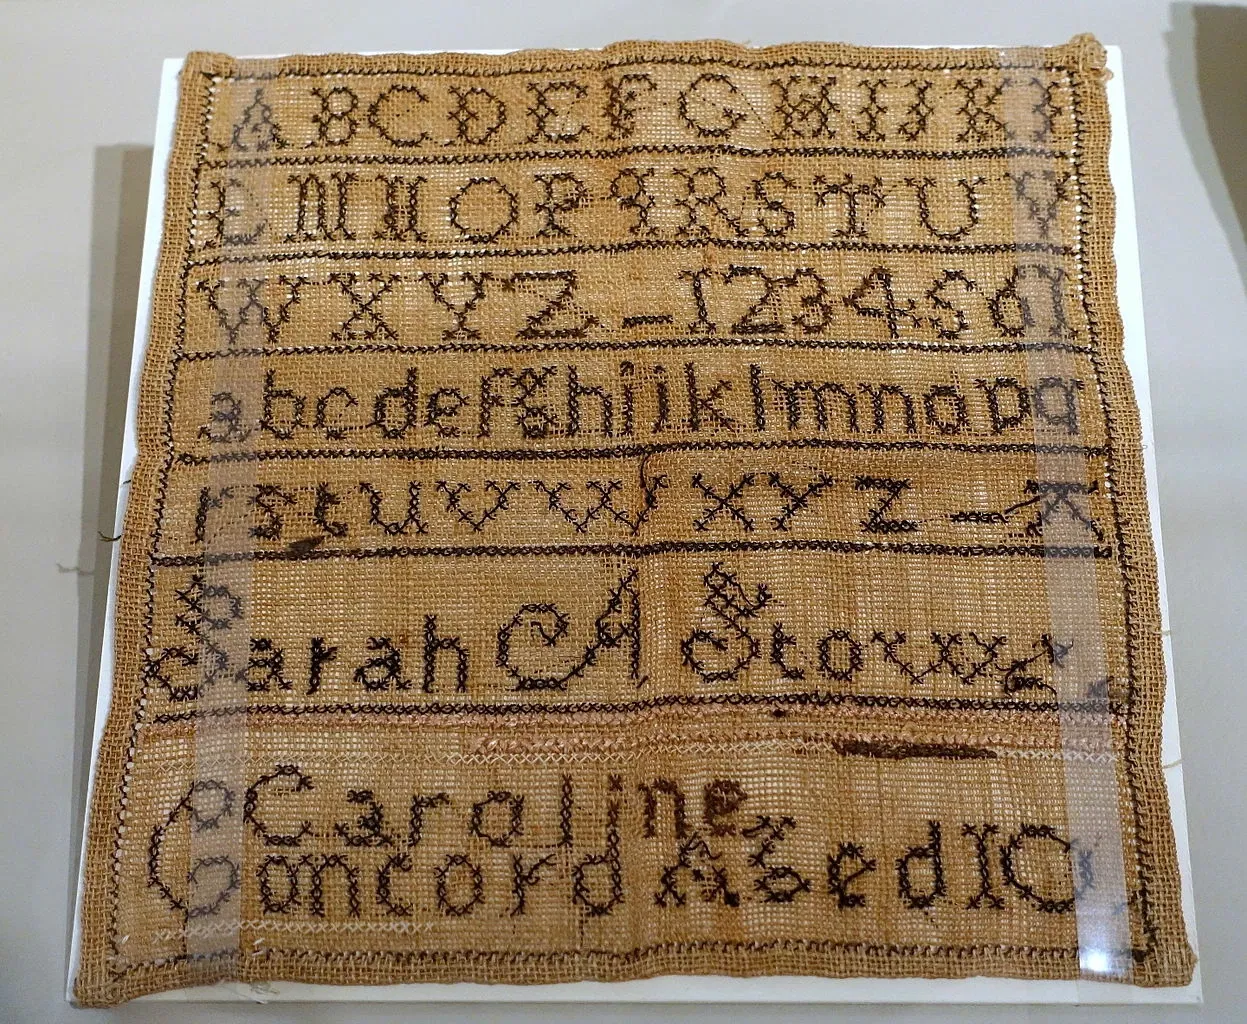 A B C D E F G H I J K
L M N O P Q R S T U V
W X Y Z _ 1 2 3 4 5 6
a b c d e f g h i j k l m n o p q
r s t u v w x y z
Sarah A Stow
Caraline
Concord Aged 10